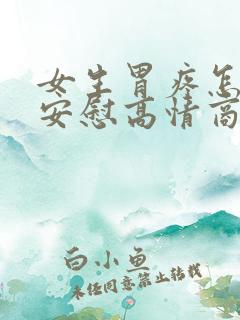 女生胃疼怎
安慰高情商
白小鱼
未经同意禁止转载